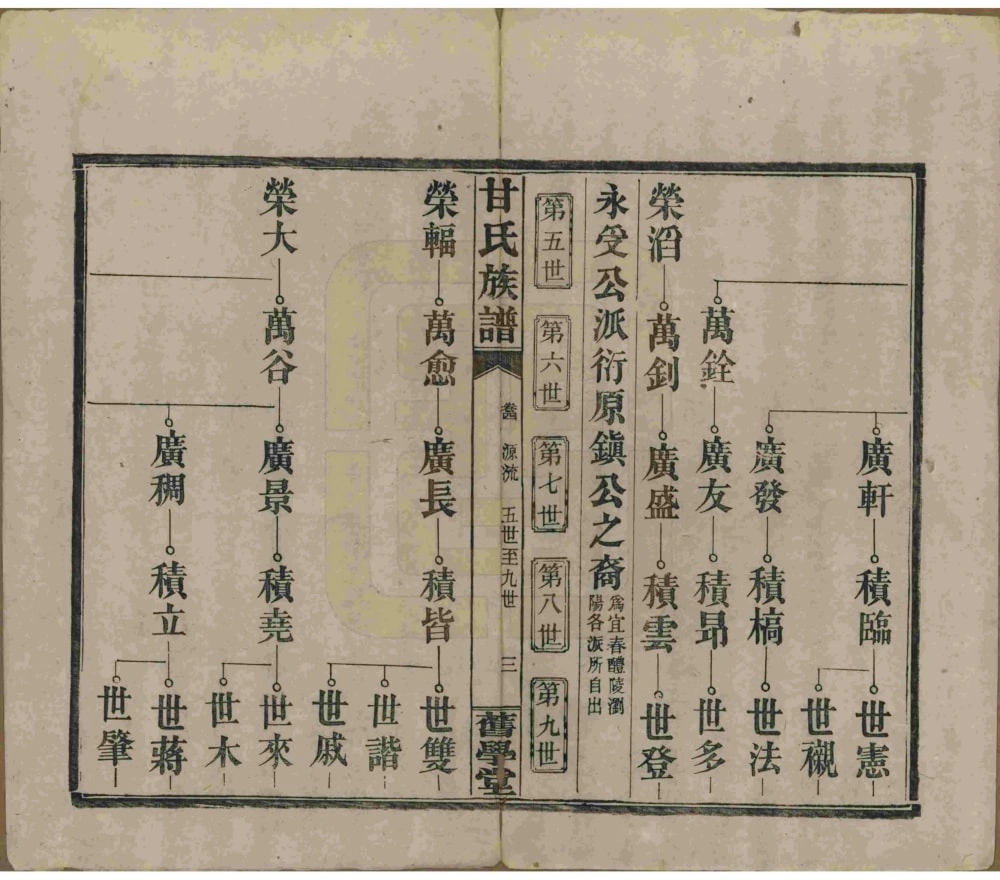 廣軒 積臨 世憲
世襯
廣發 積槁 世法
萬銓 廣友 積昂 世多
榮滔 萬釗 廣盛 積雲 世登
永受公派衍原鎮公之裔 爲宜春醴陵瀏
陽各派所自出
第五世 第六世 第七世 第八世 第九世
甘氏族譜 源流 五世至九世 三 舊學堂
榮輻 萬愈 廣長 積皆 世雙
世諧
世戚
榮大 萬谷 廣景 積堯 世來
世木
廣稠 積立 世蔣
世肇